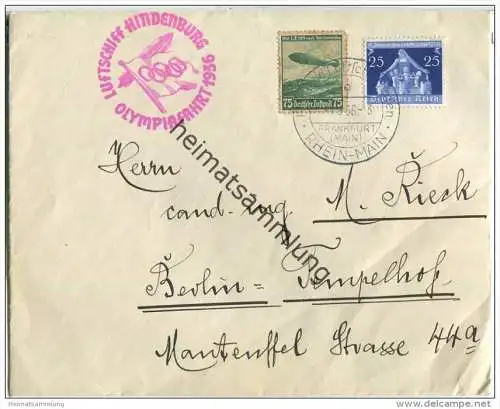 LUFTSCHIFF HINDENBURG
OLYMPIAFAHRT 1936
75 Deutsche Luftpost 75
25 25
Deutsches Reich
FRANKFURT
(MAIN)
RHEIN-MAIN
heimatsammlung
Herrn
cand. ing. M. Rieck
Berlin=Tempelhof
Manteuffel Strasse 44a
Heimatsammlung
delcampe.net